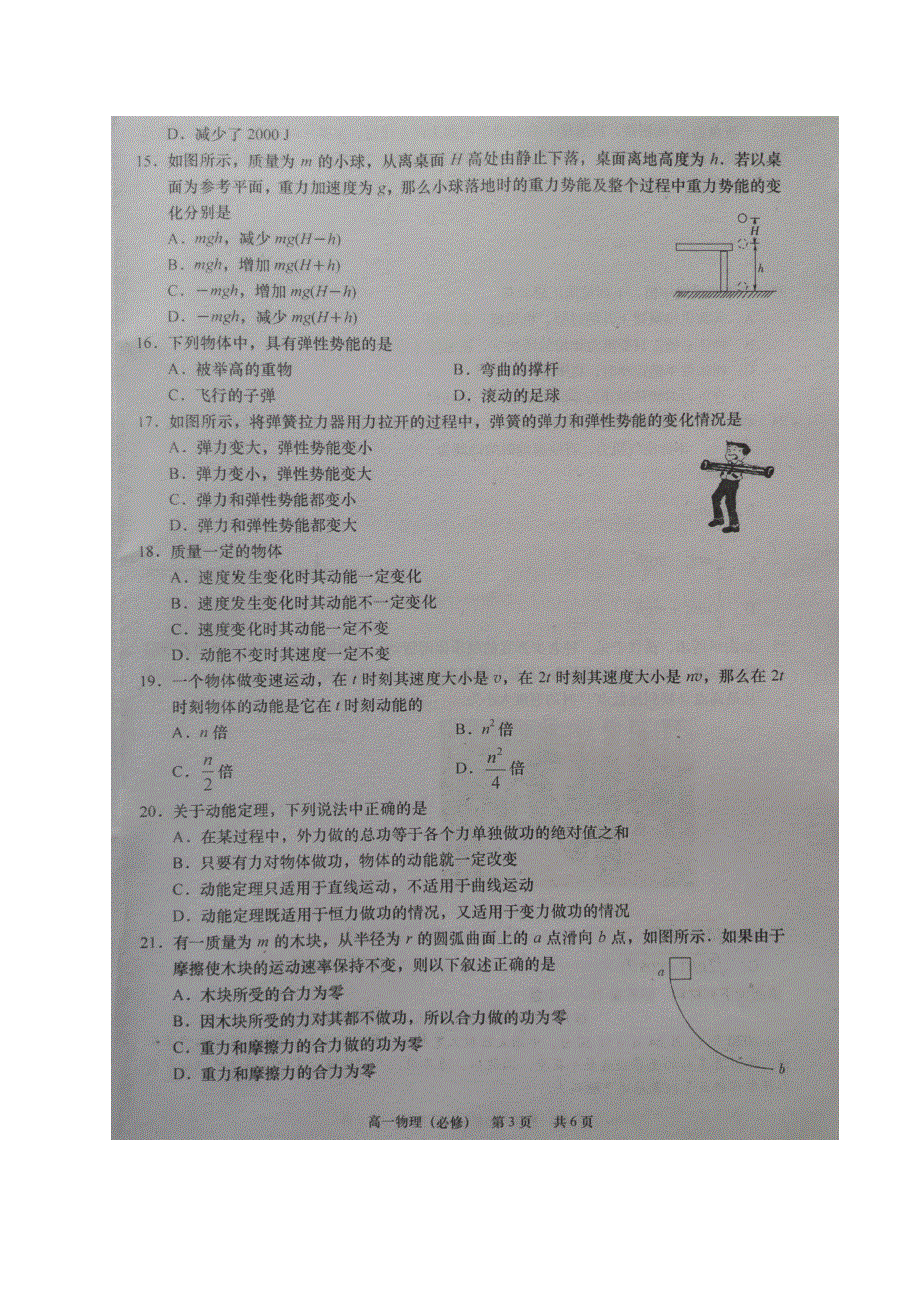 D．减少了 2000 J
15．如图所示，质量为 m 的小球，从离桌面 H 高处由静止下落，桌面离地高度为 h．若以桌
面为参考平面，重力加速度为 g，那么小球落地时的重力势能及整个过程中重力势能的变
化分别是
A．mgh，减少 mg(H－h)
B．mgh，增加 mg(H＋h)
C．－mgh，增加 mg(H－h)
D．－mgh，减少 mg(H＋h)
H
h
16．下列物体中，具有弹性势能的是
A．被举高的重物 B．弯曲的撑杆
C．飞行的子弹 D．滚动的足球
17．如图所示，将弹簧拉力器用力拉开的过程中，弹簧的弹力和弹性势能的变化情况是
A．弹力变大，弹性势能变小
B．弹力变小，弹性势能变大
C．弹力和弹性势能都变小
D．弹力和弹性势能都变大
18．质量一定的物体
A．速度发生变化时其动能一定变化
B．速度发生变化时其动能不一定变化
C．速度变化时其动能一定不变
D．动能不变时其速度一定不变
19．一个物体做变速运动，在 t 时刻其速度大小是 v，在 2t 时刻其速度大小是 nv，那么在 2t
时刻物体的动能是它在 t 时刻动能的
A．n 倍 B．n² 倍
C．n/2 倍 D．n²/4 倍
20．关于动能定理，下列说法中正确的是
A．在某过程中，外力做的总功等于各个力单独做功的绝对值之和
B．只要有力对物体做功，物体的动能就一定改变
C．动能定理只适用于直线运动，不适用于曲线运动
D．动能定理既适用于恒力做功的情况，又适用于变力做功的情况
21．有一质量为 m 的木块，从半径为 r 的圆弧曲面上的 a 点滑向 b 点，如图所示．如果由于
摩擦使木块的运动速率保持不变，则以下叙述正确的是
A．木块所受的合力为零
B．因木块所受的力对其都不做功，所以合力做的功为零
C．重力和摩擦力的合力做的功为零
D．重力和摩擦力的合力为零
a
b
高一物理（必修） 第 3 页 共 6 页